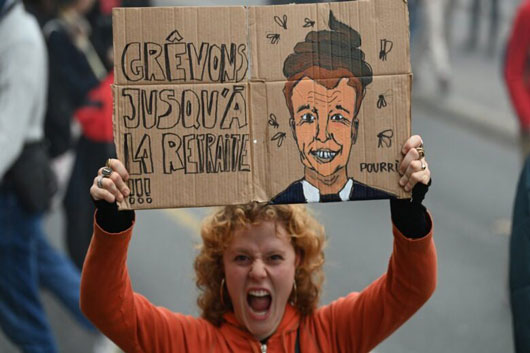 GRÊVONS
JUSQU'À
LA RETRAITE
!!!
POURRI